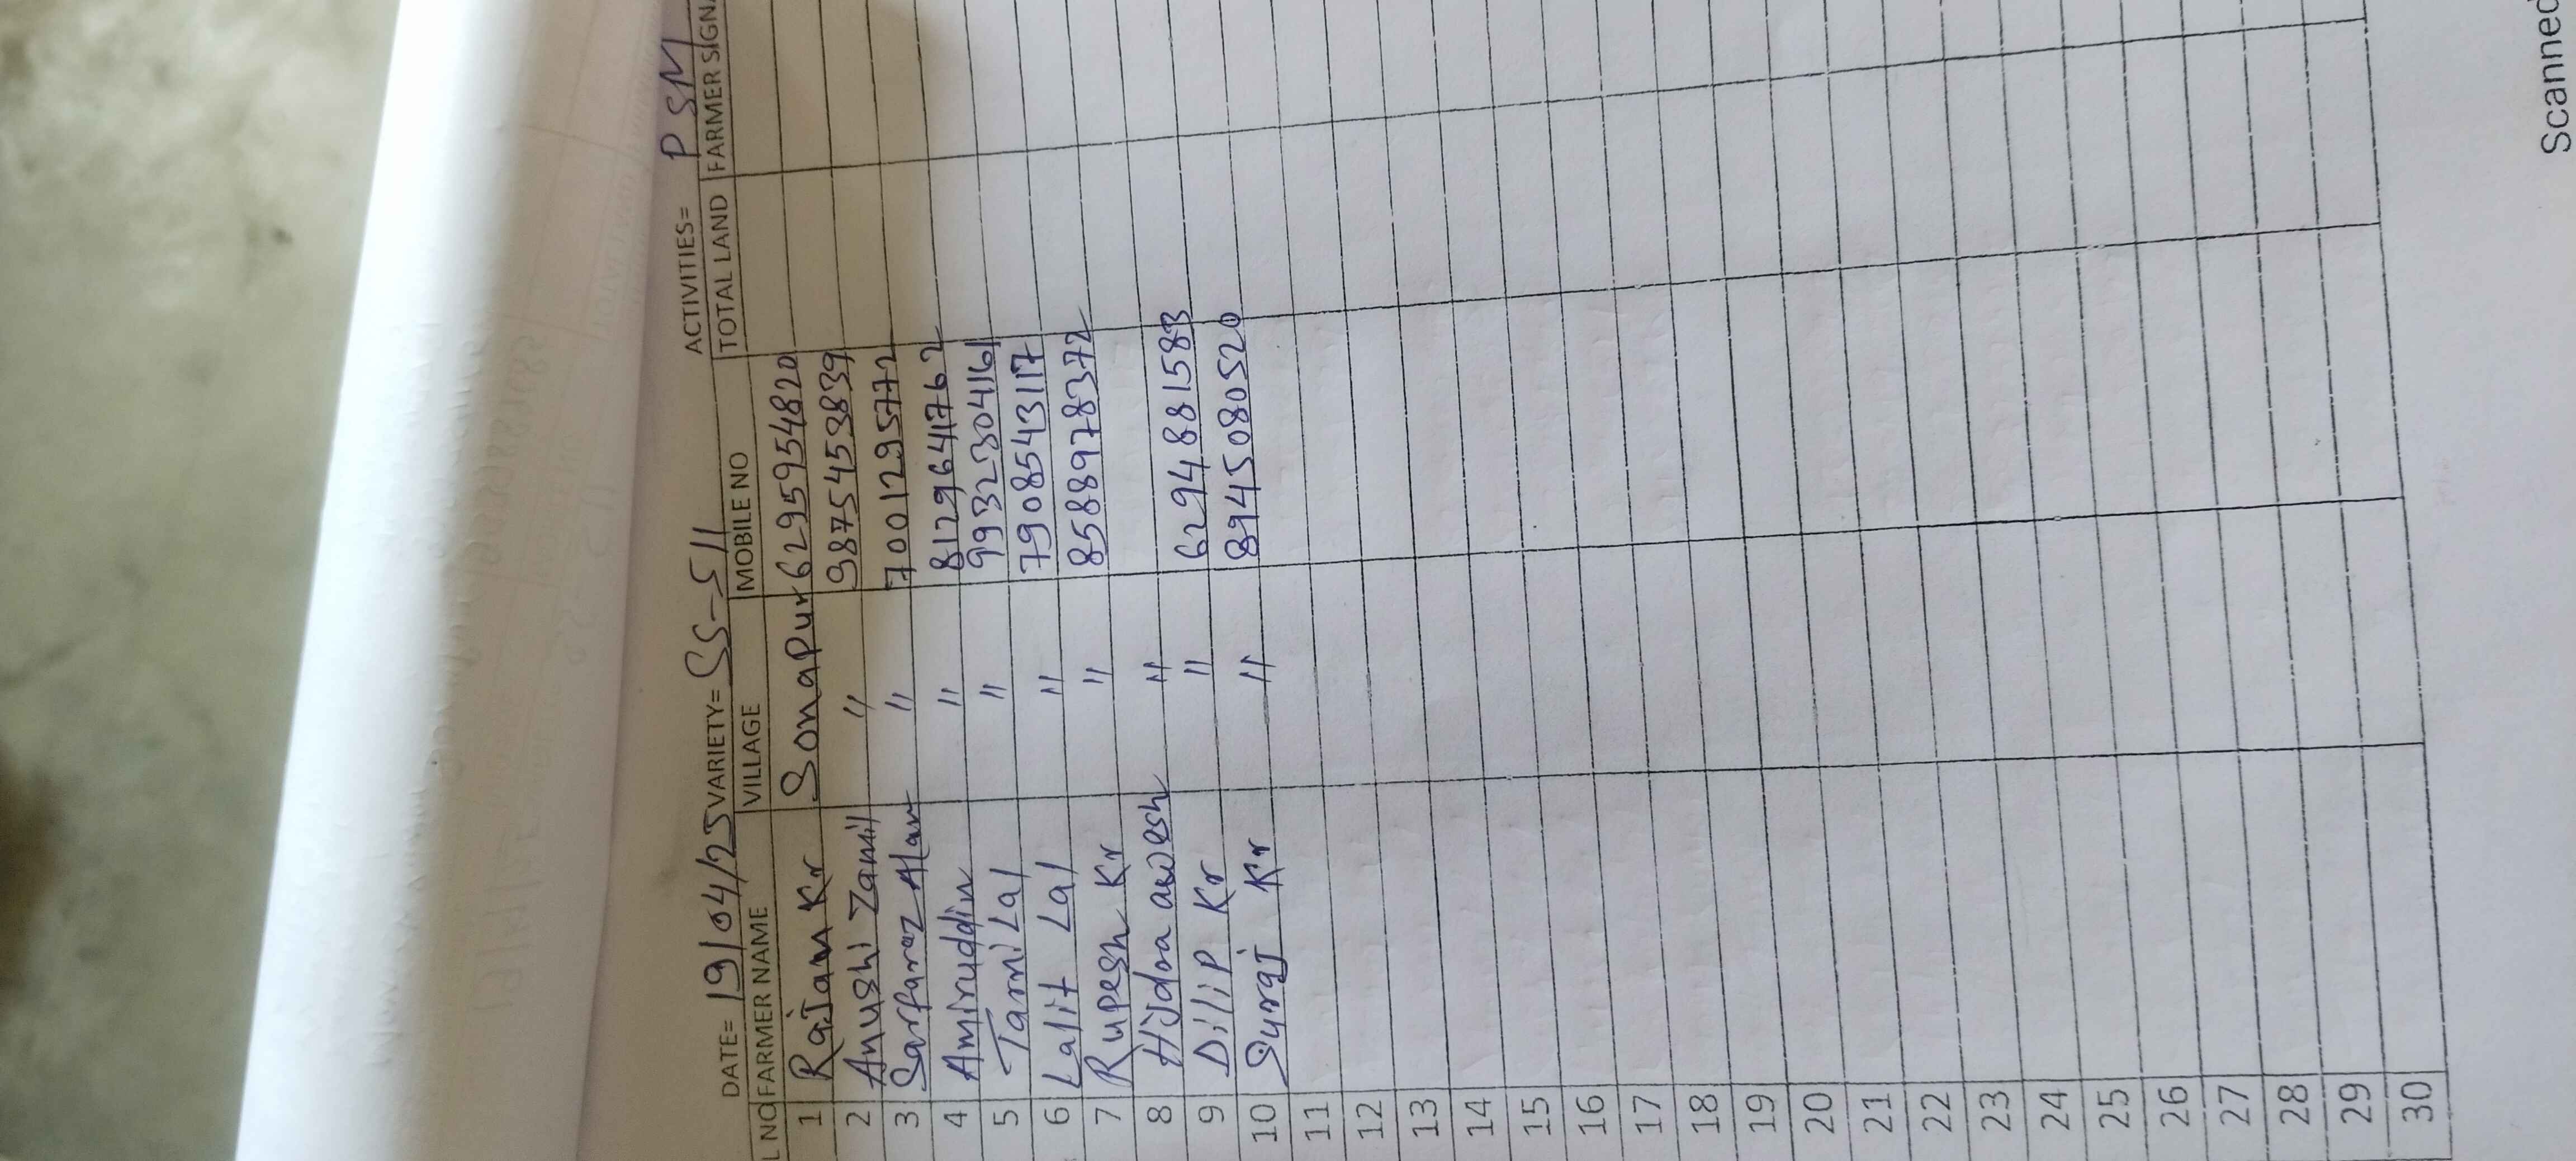 DATE= 19/04/25 VARIETY= SS-511 ACTIVITIES= PSM
L NO FARMER NAME VILLAGE MOBILE NO TOTAL LAND FARMER SIGNA
1 Rajan Kr Sonapur 6295954820
2 Anushi Zamil " 9875453839
3 Sarfaraz Alam " 7001295772
4 Amiruddin " 8129641762
5 Tamil Lal " 9932304161
6 Lalit Lal " 7908543117
7 Rupesh Kr " 8588978372
8 "
9 Dillip Kr " 6294881583
10 Suraj Kr " 8945080520
11
12
13
14
15
16
17
18
19
20
21
22
23
24
25
26
27
28
29
30
Scanned